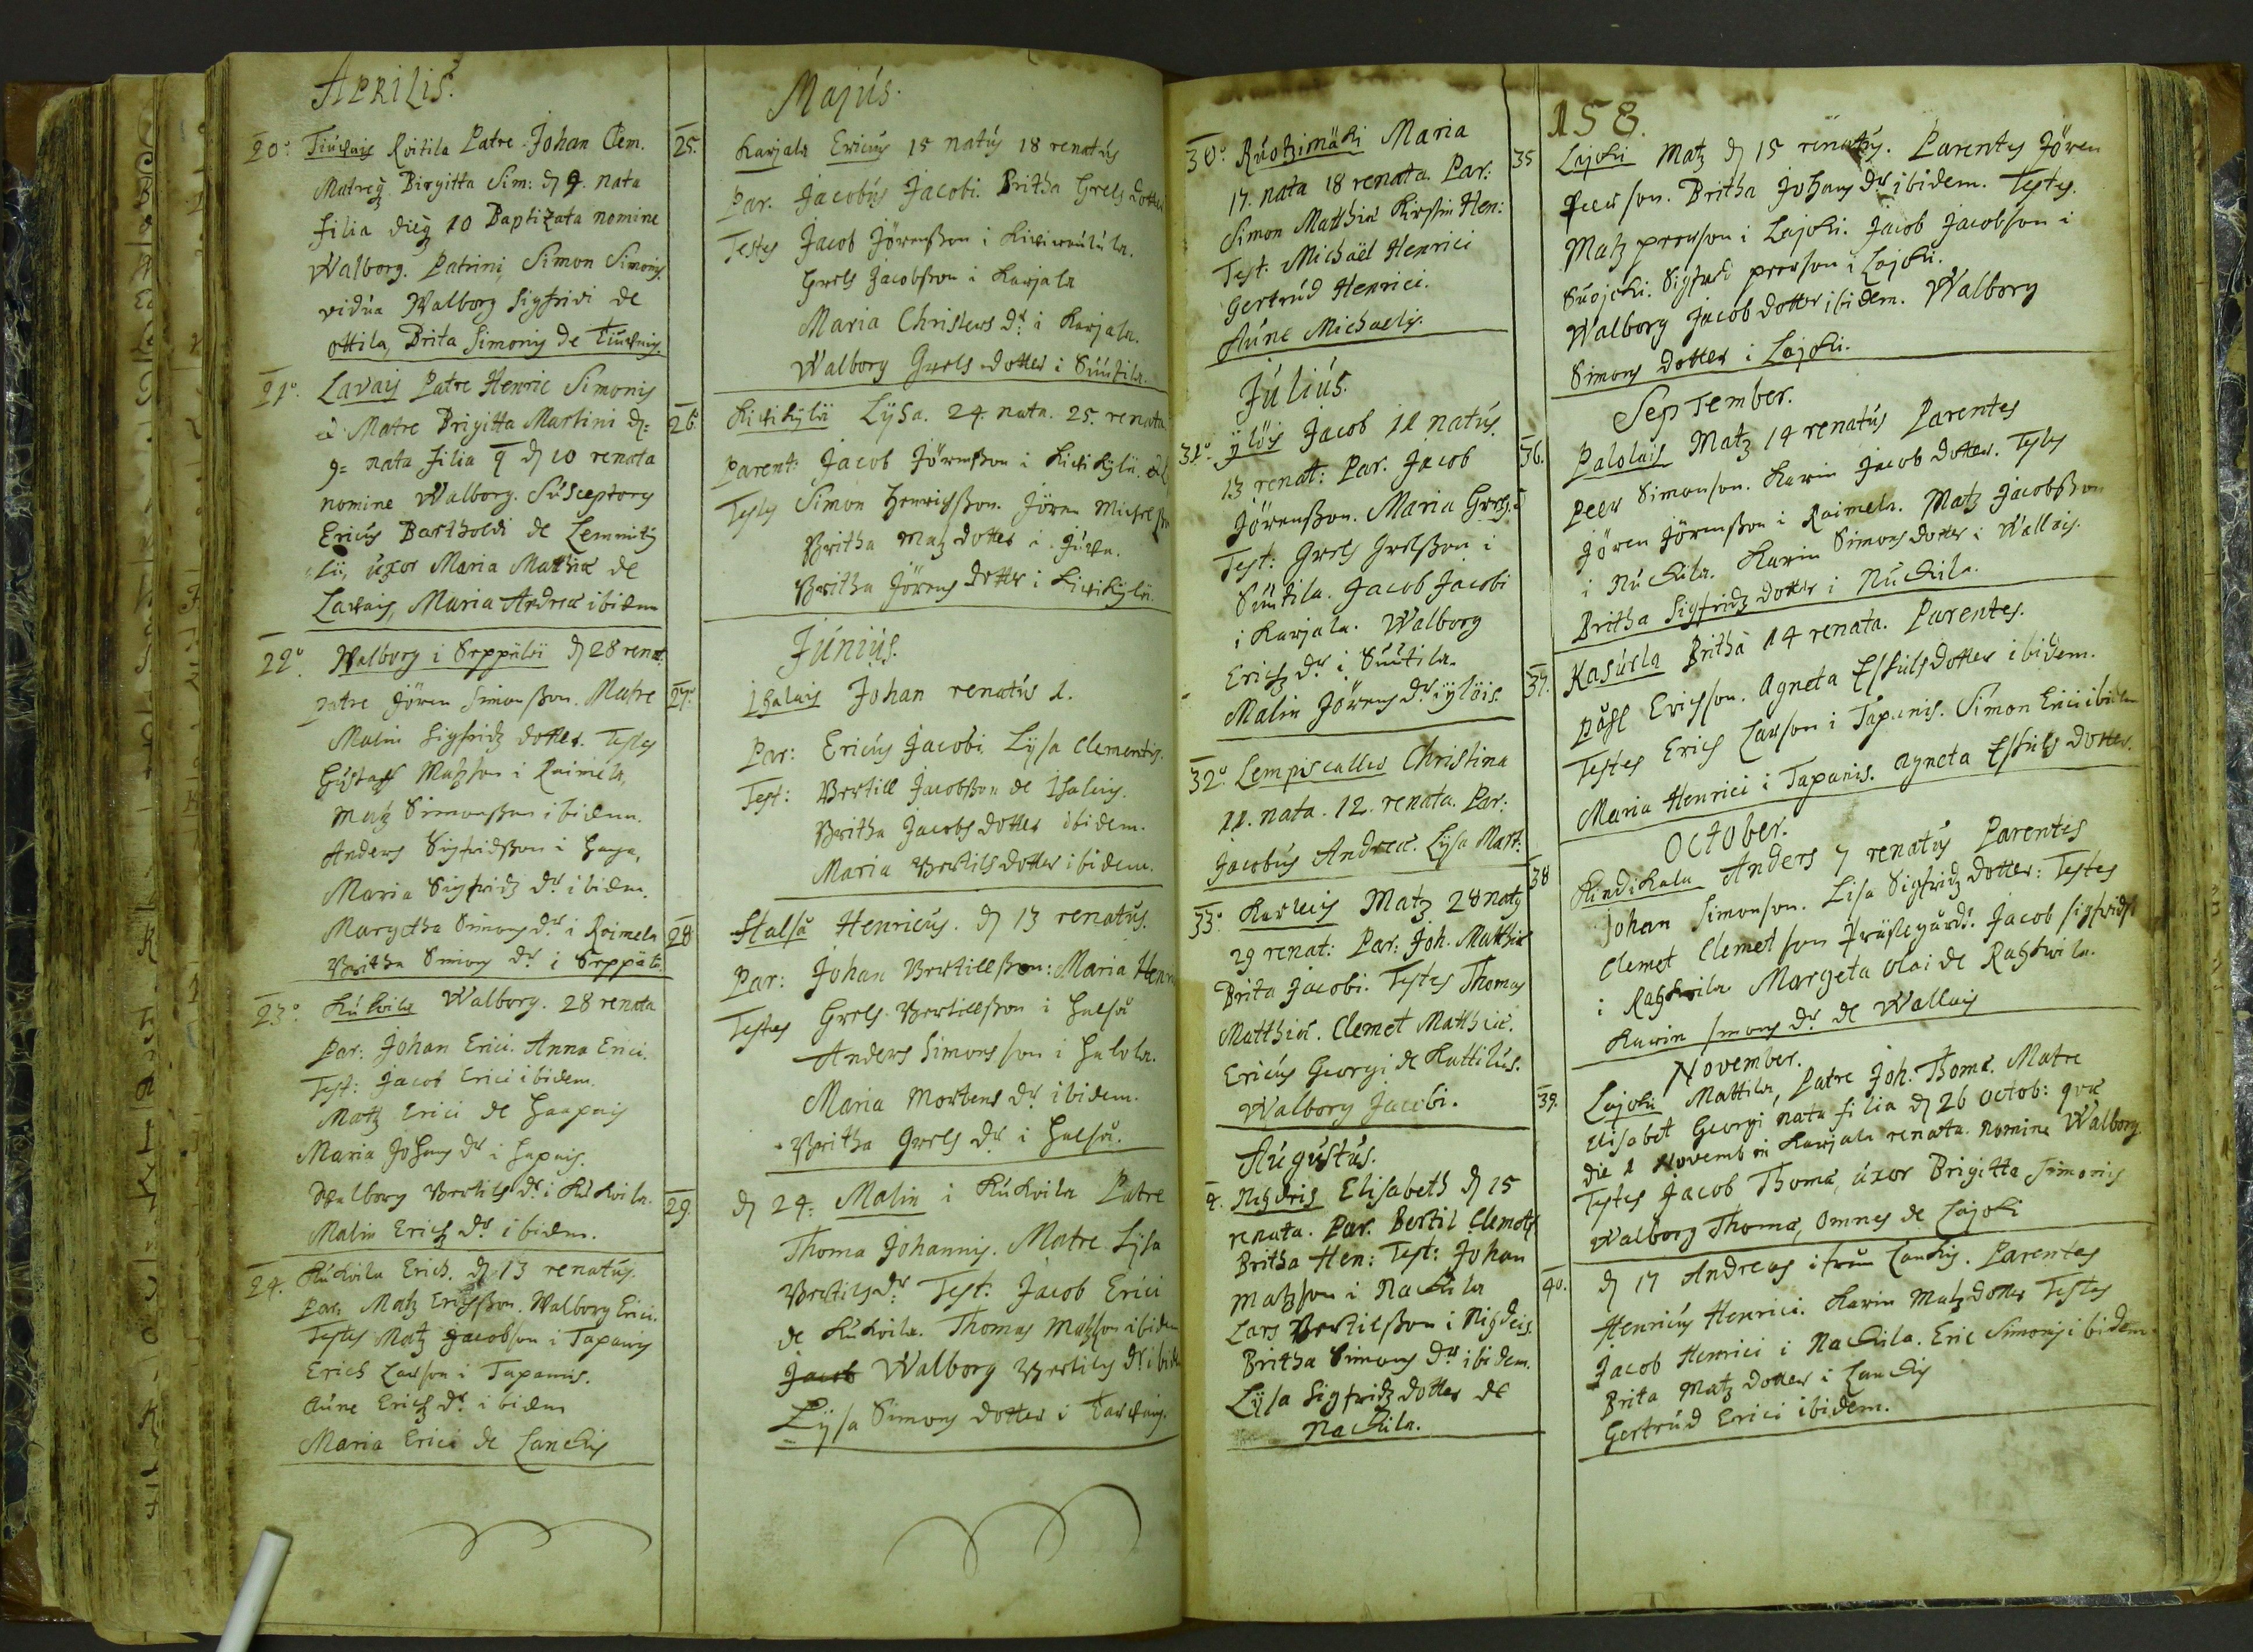 APRILIS.
20. Tiuvais Roitila Patre Johan Clem.
Matreq Birgitta Sim: d 9. nata
filia dieq 10 Baptizata nomine
Walborg. Patrini, Simon Simonis
vidua Walborg Sigfridi de
Ottila, Brita Simonis de Tiuvais.
21. Lavais Patre Henric Simonis
Matre Brigitta Martini d
9= nata filia q d 10 renata
nomine Walborg. Susceptores
Ericus Bartholdi de Lemmity
lii, uxor Maria Matthiæ de
Lavais, Maria Andreæ ibidem
22. Walborg i Seppälä d 28 renat.
patre Jören Simonsson. Matre
Malin Sigfridz dotter. Testes
Gustaff Matzson i Raimela,
Matz Simonsson ibidem.
Anders Sigfridsson i Haga,
Maria Sigfridz dr ibidem.
Margetha Simons dr i Raimela
Britha Simons dr i Seppälä.
23. Kukoila Walborg. 28 renata
Par: Johan Erici. Anna Erici.
Test: Jacob Erici ibidem.
Matz Erici de Haapais
Maria Johans dr i Hapais.
Walborg Bertils dr i Kukoila.
Malin Erichz dr ibidem.
24. Kukoila Erich. d 13 renatus.
Par: Matz Erichsson. Walborg Erici.
Testes Matz Jacobson i Tapanis
Erich Larson i Tapanis.
Aune Erichz dr ibidem
Maria Erici de Lanckis
Majus.
25. Karjala Ericus 15 natus 18 renatus
Par. Jacobus Jacobi. Britha Grels dotter
Testes Jacob Jörensson i
Grels Jacobsson i Karjala
Maria Christers dr i Karjala.
Walborg Grels dotter i Suutila.
26. Kivikylä Lysa. 24. nata. 25. renata
Parent: Jacob Jörensson i Kivikylä.
Testes Simon Henrichsson. Jören Michelsson
Britha Matz dotter i Juva.
Britha Jörens dotter i Kivikylä.
Junius.
27. Ihalais Johan renatus 1.
Par: Ericus Jacobi Lysa Clementis.
Test: Bertill Jacobsson de Ihalais.
Britha Jacobs dotter ibidem.
Maria Bertils dotter ibidem.
28 Halså Henricus. d 13 renatus.
Par: Johan Bertillsson: Maria Henri
Testes Grels Bertillsson i Halså
Anders Simonsson i Halola.
Maria Mortens dr ibidem.
Britha Grels dr i Halså.
29 d 24: Malin i Kukoila Patre
Thoma Johannis. Matre Lysa
Bertilsdr: Test: Jacob Erici
de Kukoila. Thomas Matzson ibidem
Jacob Walborg Bertils dr ibidem
Lysa Simons dotter i Karvais.
30. Ruotzimäki Maria
17. nata 18 renata. Par:
Simon Matthiæ Kirstin Hen:
Test: Michaël Henrici
Gertrud Henrici.
Aune Michaelis.
Julius.
31. ylöis Jacob 11 natus.
13 renat: Par. Jacob
Jörensson. Maria Grels.d
Test: Grels Grelsson i
Suutila. Jacob Jacobi
i Karjala. Walborg
Erichz dr i Suutila.
Malin Jörens dr i ylöis.
32. Lempiscallio Christina
11. nata. 12. renata. Par:
Jacobus Andreæ. Lysa Mart:
33. Karleis Matz 28 naty
29 renat: Par: Joh. Matthiæ
Brita Jacobi. Testes Thomas
Matthiæ. Clemet Matthiæ.
Ericus Georgi de Kattilus.
Walborg Jacobi.
Augustus.
Elisabeth d 15
renata. Par. Bertil Clemets
Britha Hen: Test: Johan
Matzson i Nackila
Lars Bertilsson i
Britha Simons dr ibidem.
Lysa Sigfridz dotter de
Nackila.
158.
35 Lajoki Matz d 15 renatus. Parentes Jören
Peerson. Britha Johans dr ibidem. Testes.
Matz peerson i Lajoki. Jacob Jacobson i
Suojoki. Sigfred peerson i Lajoki.
Walborg Jacob dotter ibidem. Walborg
Simons dotter i Lajoki.
September.
36. Palolais Matz 14 renatus Parentes
Peer Simonson. Karin Jacob dotter. Testes
Jören Jörensson i Raimela. Matz Jacobsson
i Nuckila. Karin Simonsdotter i Wallais.
Britha Sigfridz dotter i Nuckila.
37. Kasurla Britha 14 renata. Parentes.
Påfl Erichson. Agneta Eskilsdotter ibidem.
Testes Erich Larson i Tapanis. Simon Erici ibidem
Maria Henrici i Tapanis. Agneta Eskils dotter.
October.
38 Hindikala Anders 7 renatus Parentes
Johan Simonson. Lisa Sigfridz dotter: Testes
Clemet Clemetson Präslegårds. Jacob Sigfridson
i Ratzkoila Margeta Olai de Ratzkoila.
Karin Simons dr de Wallais
November.
39. Lajoki Mattila, Patre Joh. Thomæ. Matre
Elisabet Georgi nata filia d 26 octob: quæ
die 1 Novemb in Karjala renata nomine Walborg
Testes Jacob Thomæ, uxor Brigitta Simonis
Walborg Thomæ, Omnes de Lajoki
40. d 17 Andreas ifrån Lanckis. Parentes
Henricus Henrici. Karin Matzdotter Testes
Jacob Henrici i Nackila. Eric Simonis ibidem
Brita Matz dotter i Lanckis
Gertrud Erici ibidem.